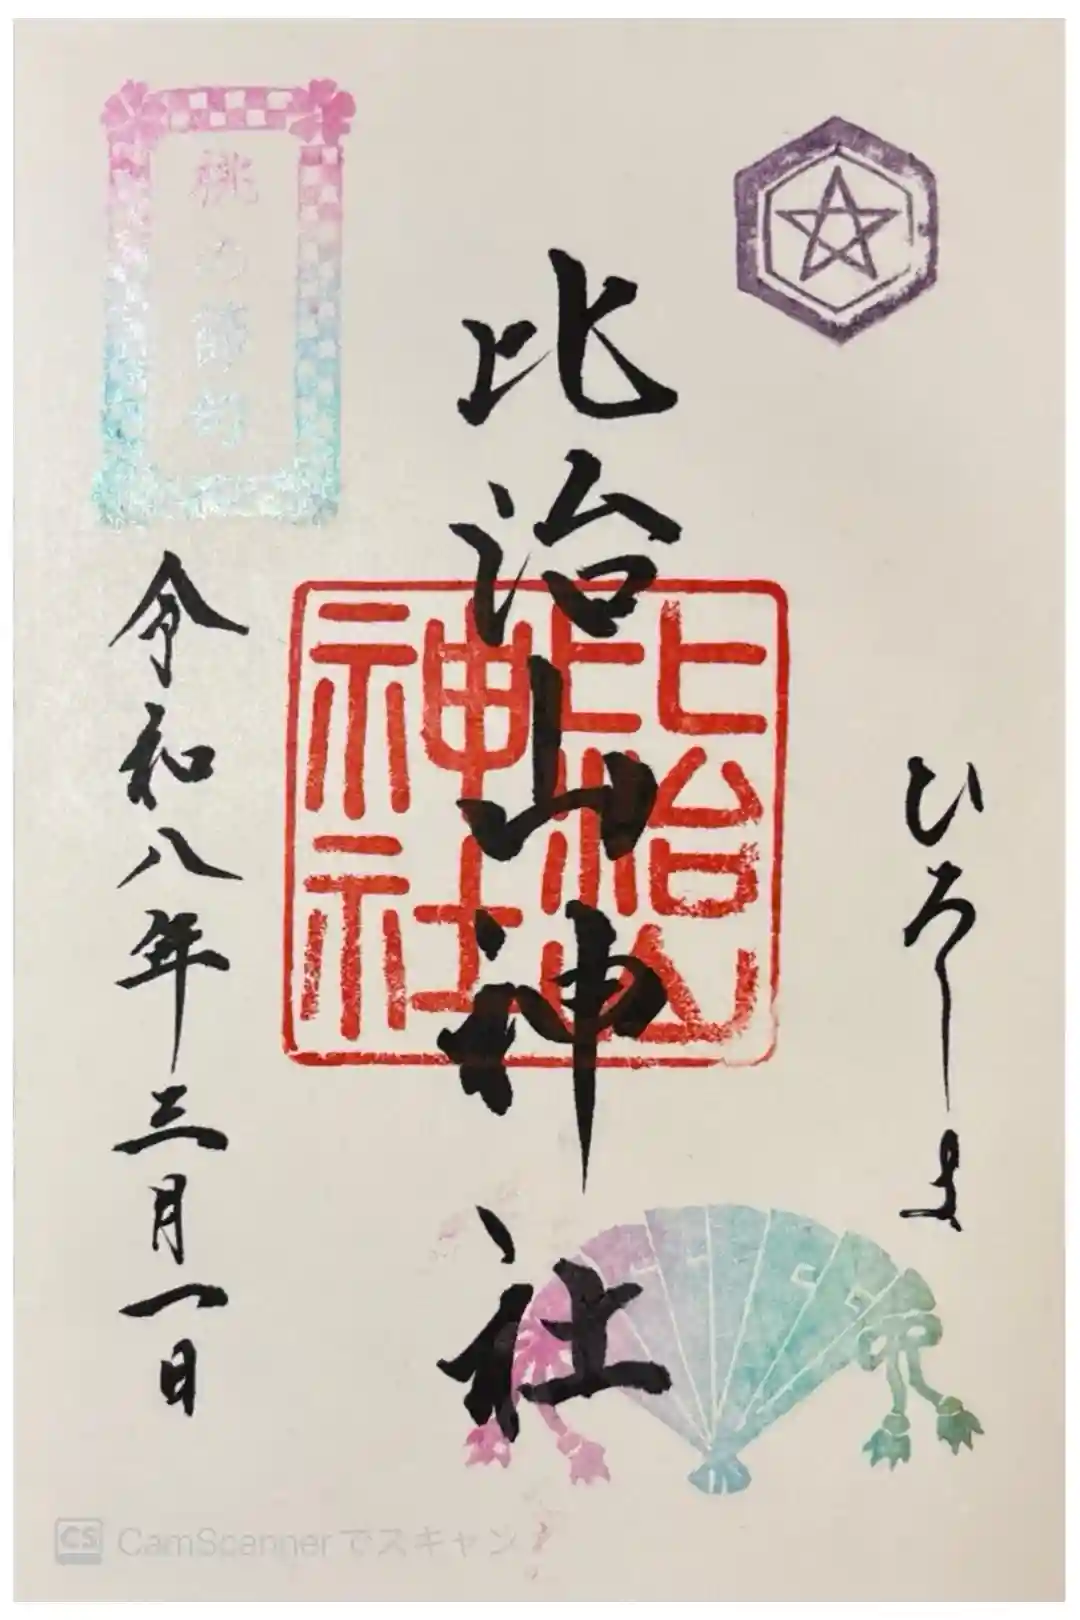 ひろしま
比治山神社
比治山神社
桃の節句
令和八年三月一日
CS CamScannerでスキャン